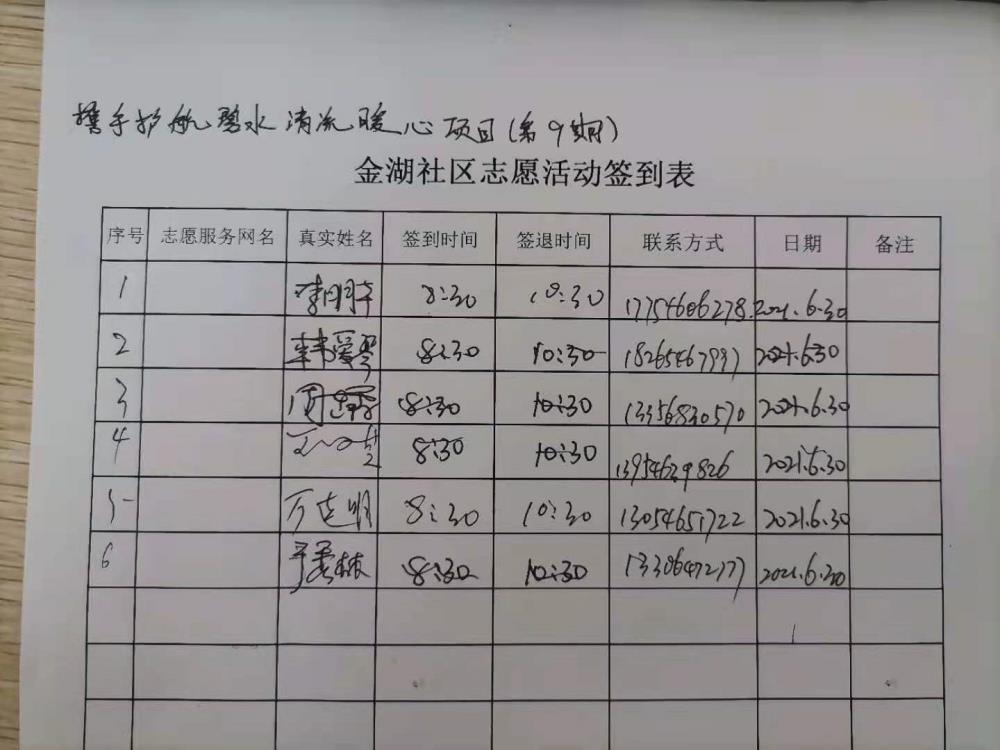 携手护航碧水清流暖心项目(第9期)
金湖社区志愿活动签到表
序号 志愿服务网名 真实姓名 签到时间 签退时间 联系方式 日期 备注
1 8:30 10:30 17754606278 2021.6.30
2 韩爱琴 8:30 10:30 2021.6.30
3 8:30 10:30 13356830570 2021.6.30
4 8:30 10:30 13954629826 2021.6.30
5 万连明 8:30 10:30 13054651722 2021.6.30
6 8:30 10:30 2021.6.30